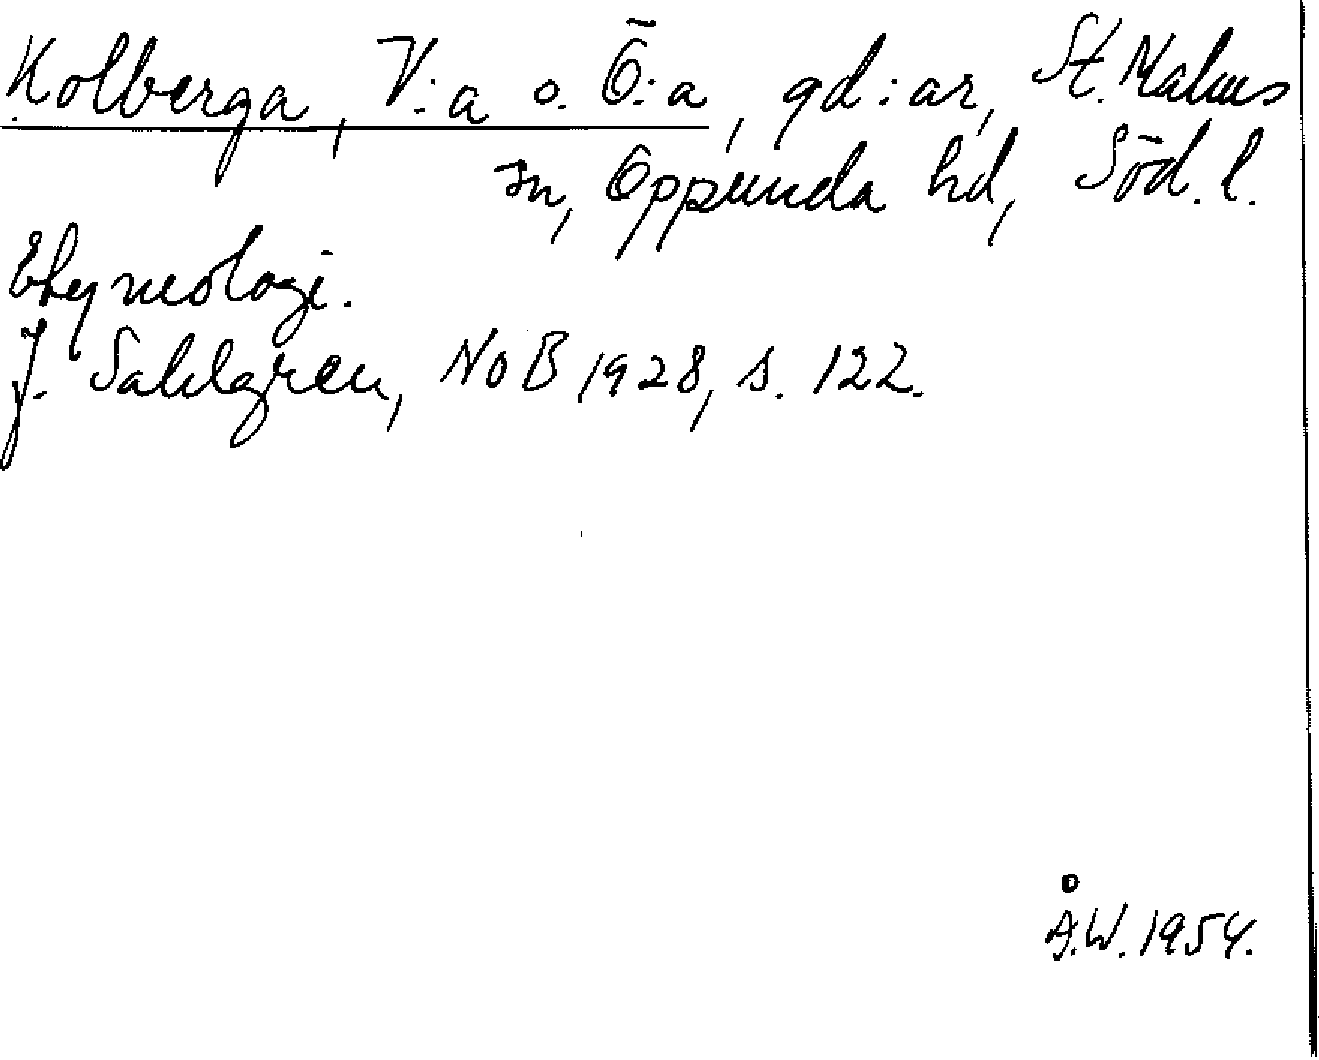 Kolberga, V:a o. Ö:a, gd:ar, St. Malms
sn, Oppunda hd, Söd. l.
Etymologi.
J. Sahlgren, NoB 1928, s. 122.
Å.W. 1954.